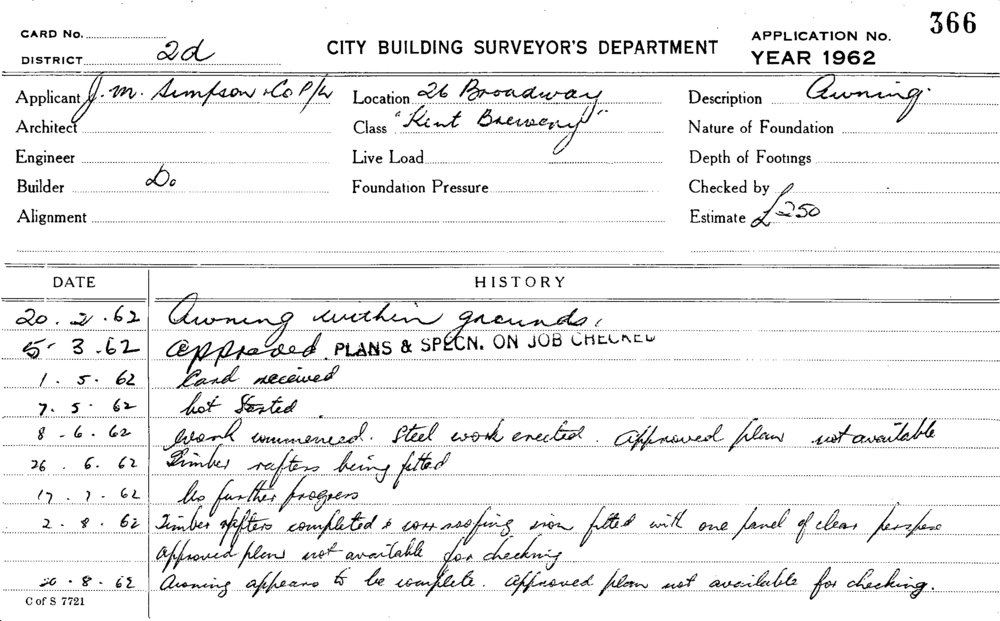 CARD No.
DISTRICT 2d
CITY BUILDING SURVEYOR'S DEPARTMENT
APPLICATION No. 366
YEAR 1962
Applicant J. M. Simpson & Co P/L
Location 26 Broadway
Description Awning.
Architect
Class "Kent Brewery"
Nature of Foundation
Engineer
Live Load
Depth of Footings
Builder Do
Foundation Pressure
Checked by
Alignment
Estimate £250
DATE HISTORY
20.2.62 Awning within grounds.
5.3.62 Approved. PLANS & SPECN. ON JOB CHECKED
1.5.62 Card received
7.5.62 Not Started.
8.6.62 Work commenced. Steel work erected. Approved plan not available
26.6.62 Timber rafters being fitted
17.7.62 No further progress
2.8.62 Timber rafters completed & corr roofing iron fitted with one panel of clear perspex
approved plan not available for checking
20.8.62 Awning appears to be complete. Approved plan not available for checking.
C of S 7721